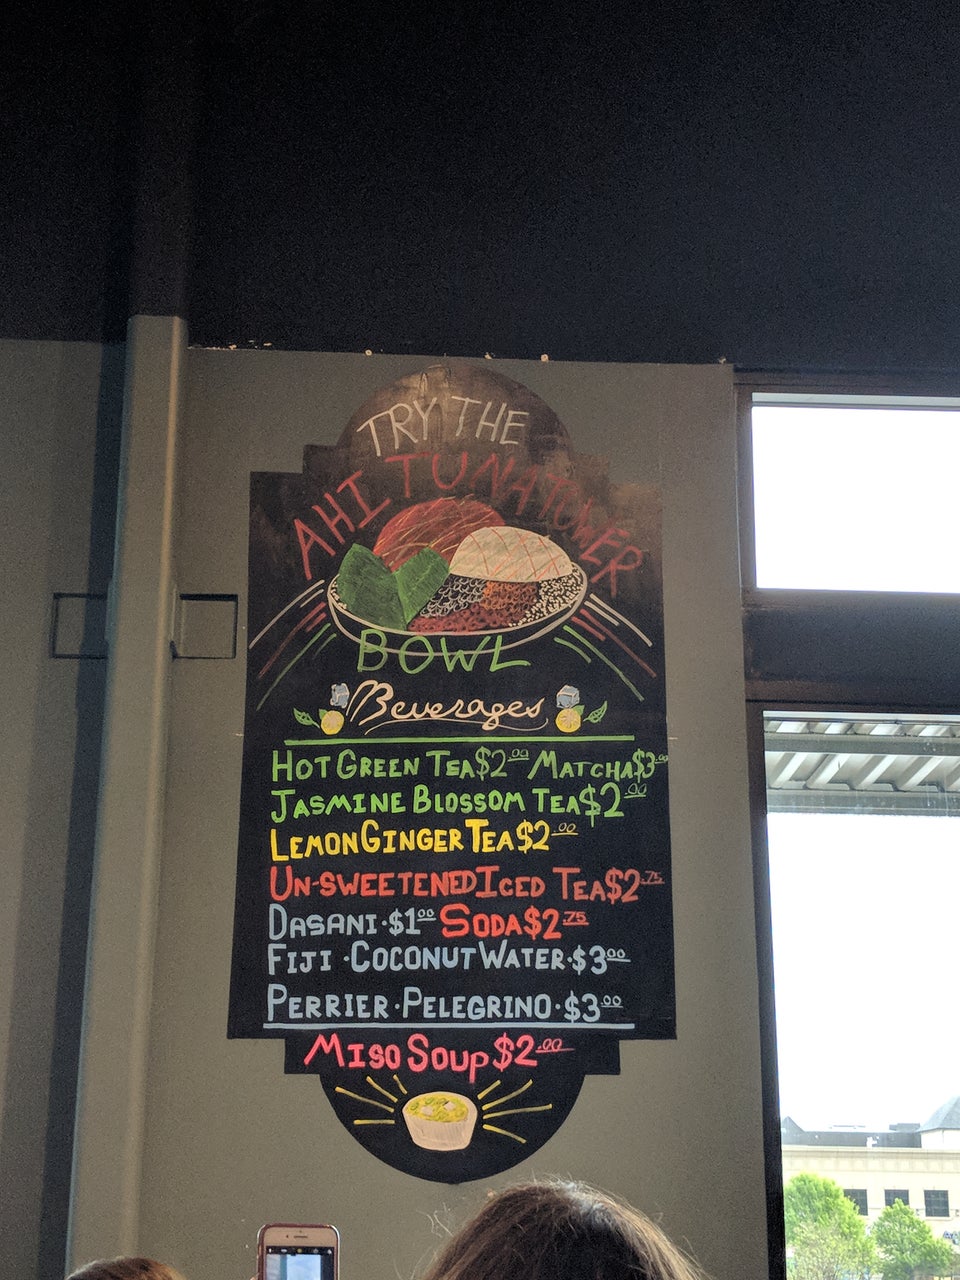 TRY THE
AHI TUNA TOWER
BOWL
Beverages
HOT GREEN TEA $2.00 MATCHA $3.00
JASMINE BLOSSOM TEA $2.00
LEMON GINGER TEA $2.00
UN-SWEETENED ICED TEA $2.75
DASANI · $1.00 SODA $2.75
FIJI · COCONUT WATER · $3.00
PERRIER · PELEGRINO · $3.00
MISO SOUP $2.00